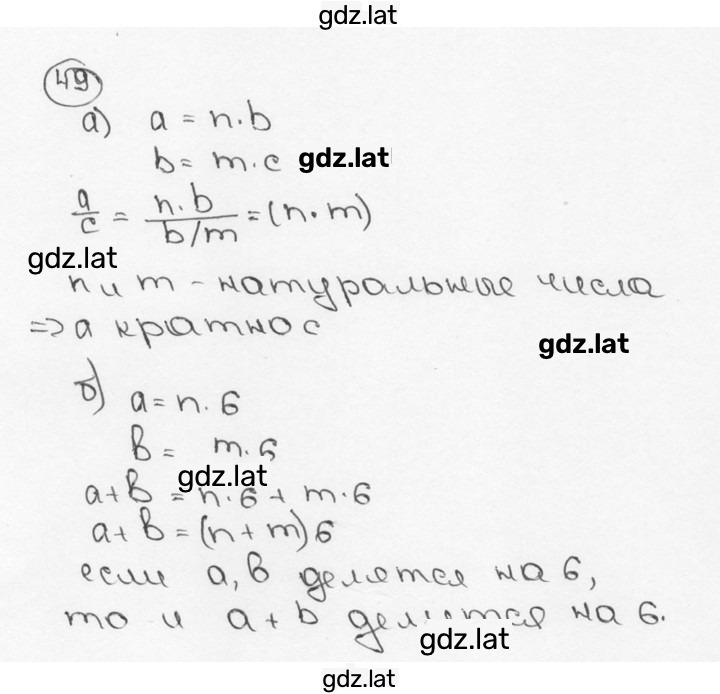 gdz.lat
49
а) a = n·b
b = m·c gdz.lat
a/c = n·b / b/m = (n·m)
gdz.lat
n и m - натуральные числа
=> a кратно c
gdz.lat
б) a = n·6
b = m·6
gdz.lat
a+b = n·6 + m·6
a+b = (n+m)6
если a, b делятся на 6,
то и a+b делится на 6.
gdz.lat
gdz.lat